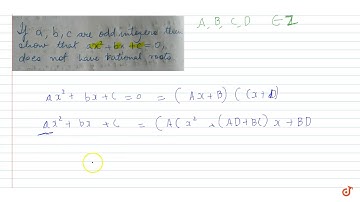 If a, b, c are odd integers then
show that ax² + bx + c = 0,
does not have rational roots
A, B, C, D ∈ Z
ax² + bx + c = 0 = (Ax+B) (Cx+D)
ax² + bx + c = (AC x² + (AD+BC) x + BD